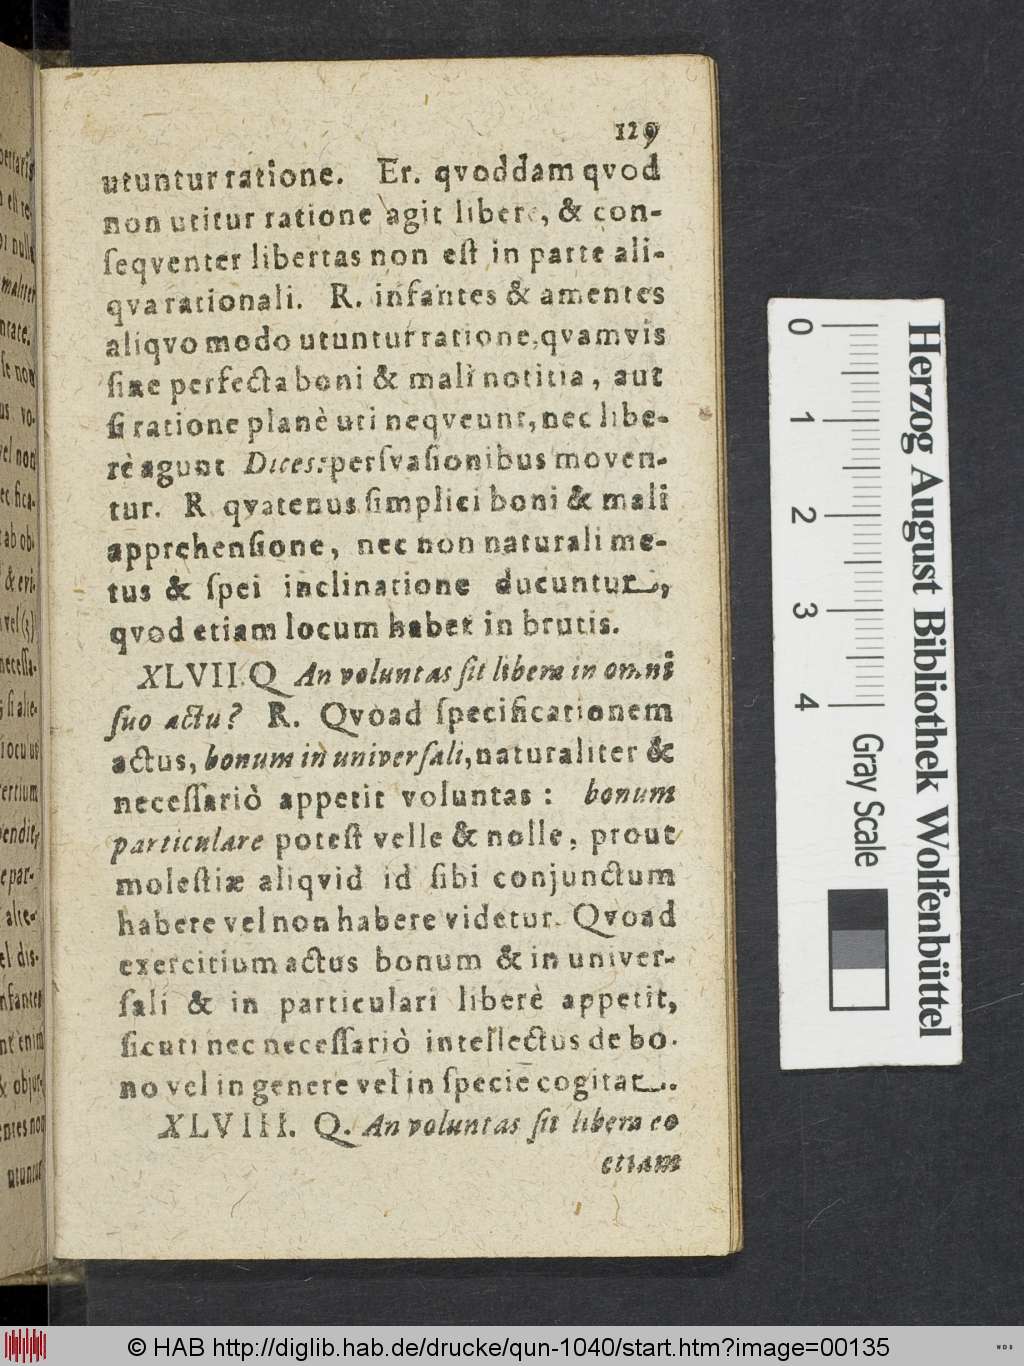 129
utuntur ratione. Er. qvoddam qvod
non utitur ratione agit libere, & con-
ſeqventer libertas non eſt in parte ali-
qva rationali. R. infantes & amentes
aliqvo modo utuntur ratione, qvamvis
ſine perfecta boni & mali notitia, aut
ſi ratione planè uti neqveunt, nec libe-
rè agunt Dices: perſvaſionibus moven-
tur. R qvatenus ſimplici boni & mali
apprehenſione, nec non naturali me-
tus & ſpei inclinatione ducuntur,
qvod etiam locum habet in brutis.
XLVII. Q An voluntas ſit libera in omni
ſuo actu? R. Qvoad ſpecificationem
actus, bonum in univerſali, naturaliter &
neceſſariò appetit voluntas: bonum
particulare poteſt velle & nolle, prout
moleſtiæ aliqvid id ſibi conjunctum
habere vel non habere videtur. Qvoad
exercitium actus bonum & in univer-
ſali & in particulari liberè appetit,
ſicuti nec neceſſariò intellectus de bo-
no vel in genere vel in ſpecie cogitat.
XLVIII. Q. An voluntas ſit libera eo
etiam
0
1
2
3
4
Herzog August Bibliothek Wolfenbüttel
Gray Scale
© HAB http://diglib.hab.de/drucke/qun-1040/start.htm?image=00135